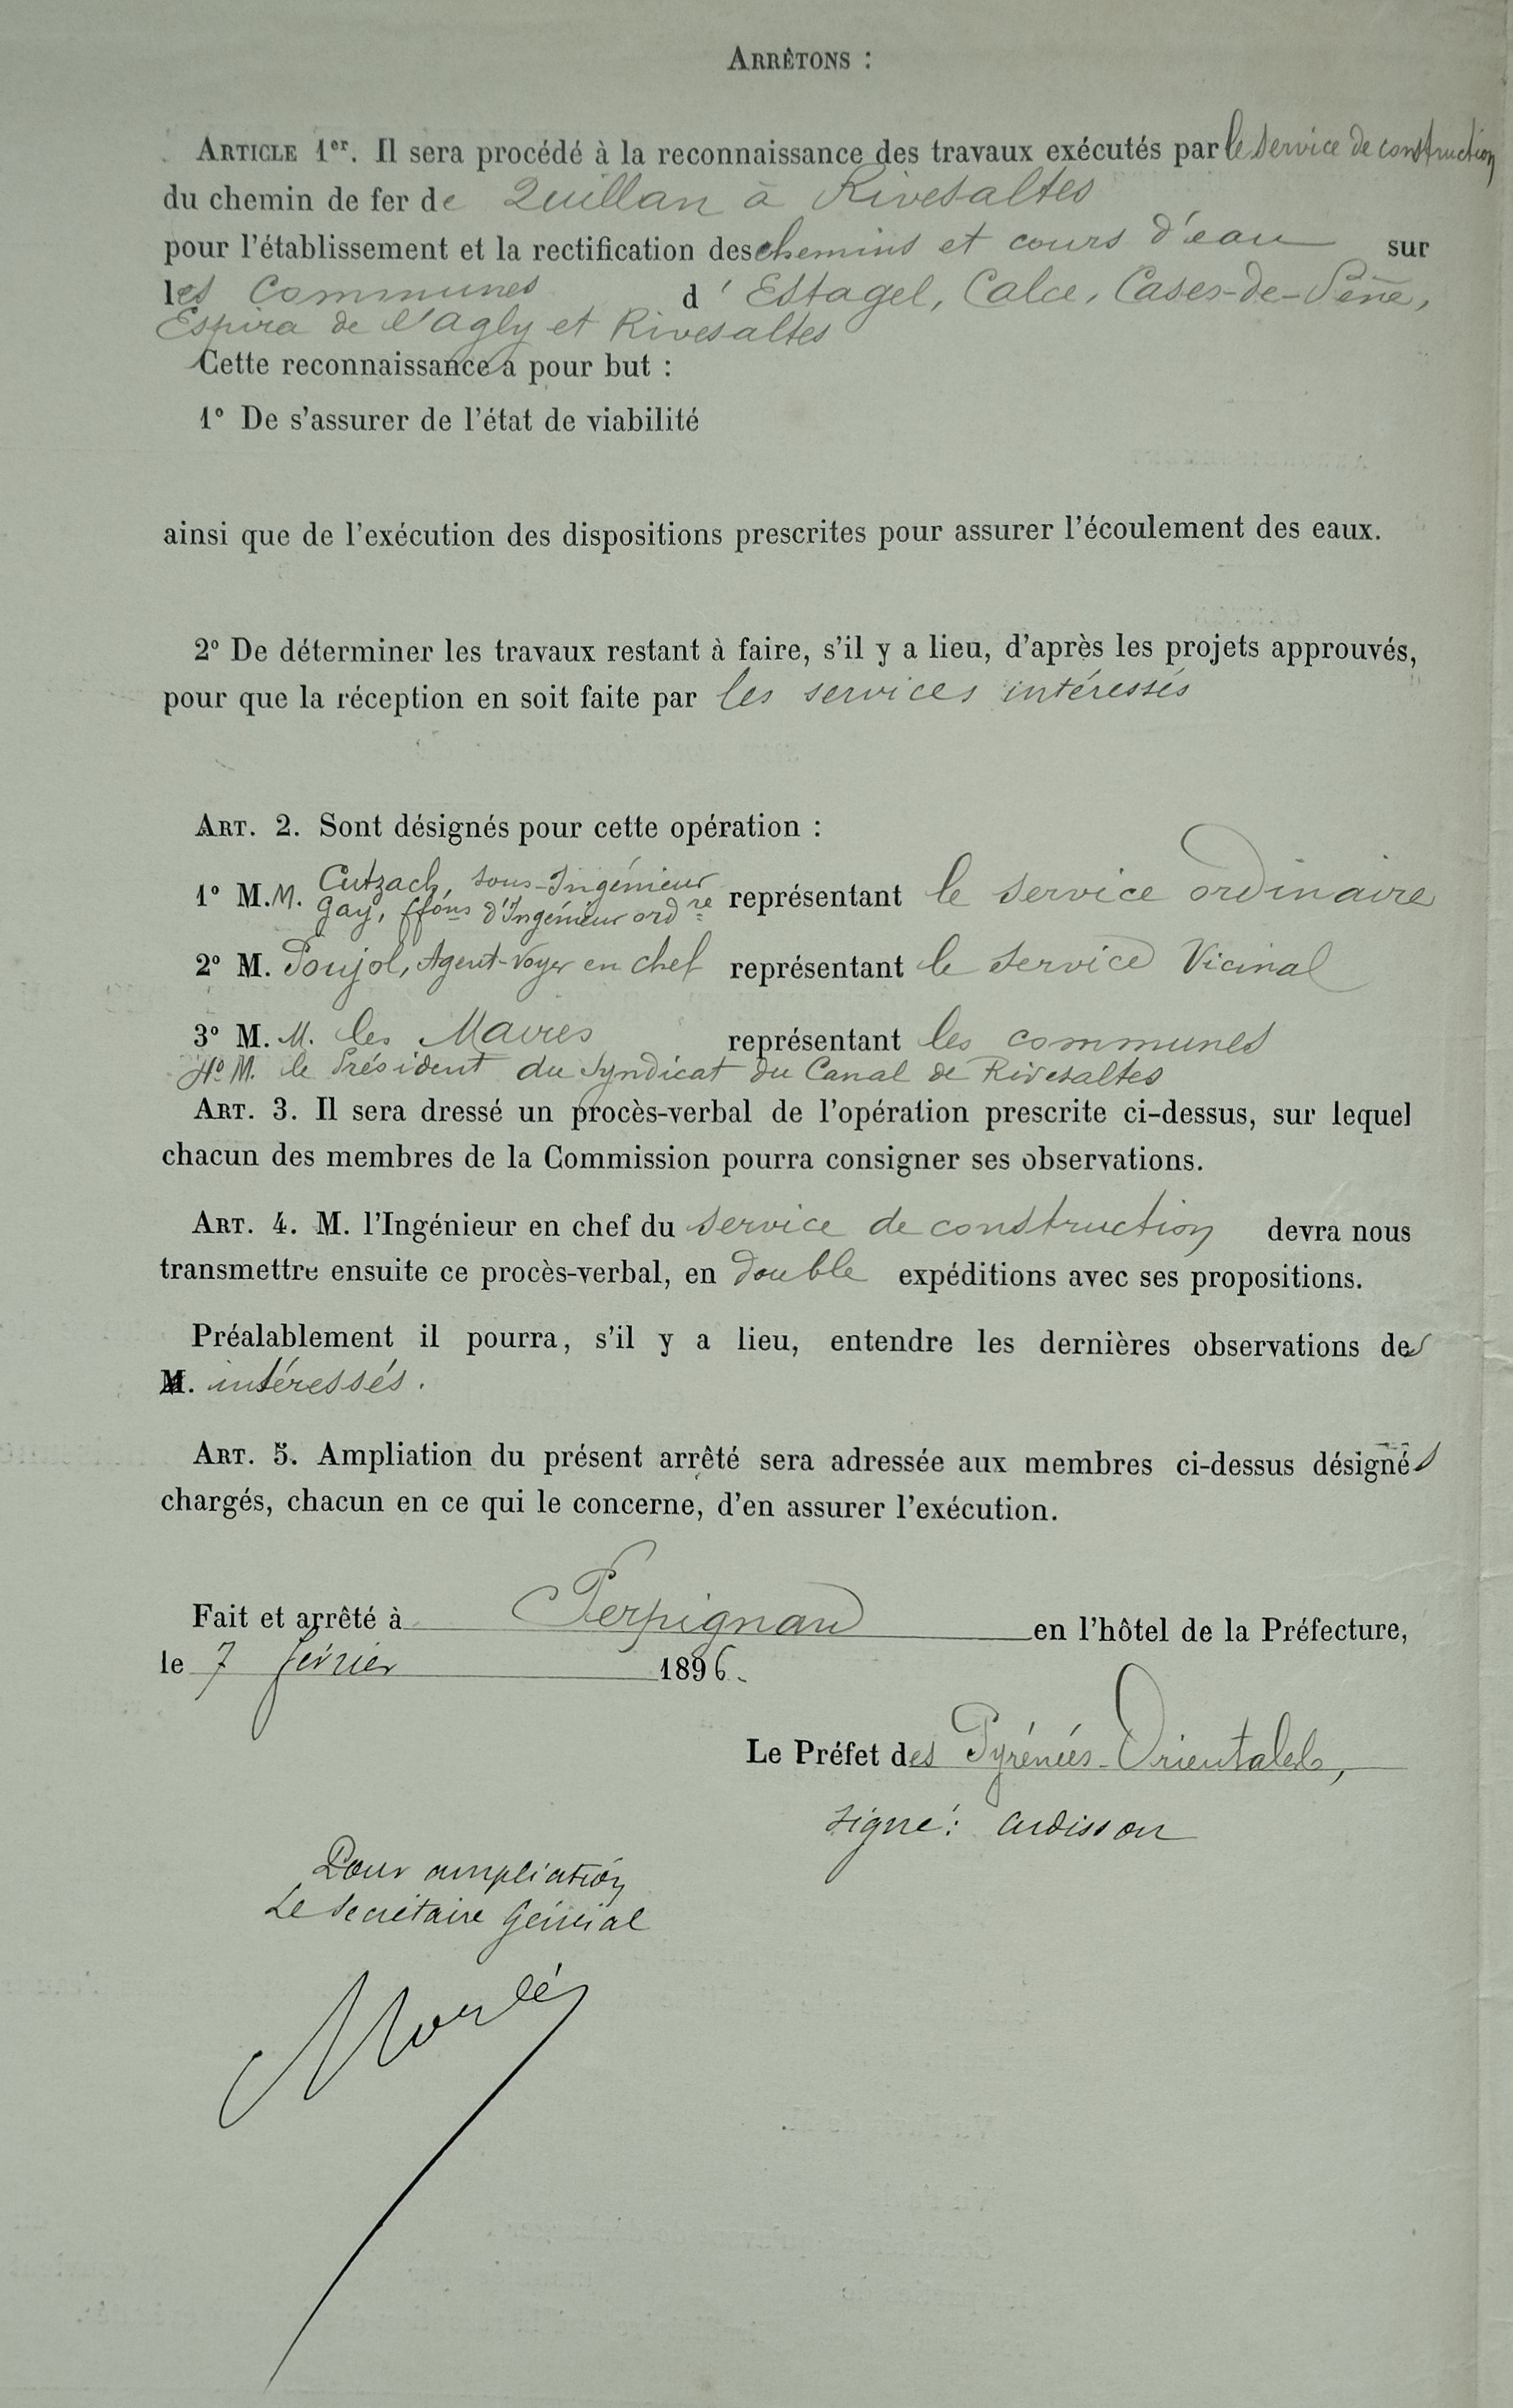 ARRÊTONS :
ARTICLE 1er. Il sera procédé à la reconnaissance des travaux exécutés par le service de construction
du chemin de fer de Quillan à Rivesaltes
pour l'établissement et la rectification des chemins et cours d'eau sur
les Communes d'Estagel, Calce, Cases-de-Pène,
Espira de l'Agly et Rivesaltes
Cette reconnaissance a pour but :
1º De s'assurer de l'état de viabilité
ainsi que de l'exécution des dispositions prescrites pour assurer l'écoulement des eaux.
2º De déterminer les travaux restant à faire, s'il y a lieu, d'après les projets approuvés,
pour que la réception en soit faite par les services intéressés
ART. 2. Sont désignés pour cette opération :
1º M.M. Cutzach, sous-Ingénieur
Gay, ffons d'Ingénieur ordre représentant le service ordinaire
2º M. Poujol, Agent-Voyer en chef représentant le service Vicinal
3º M.M. les Maires représentant les communes
4º M. le Président du Syndicat du Canal de Rivesaltes
ART. 3. Il sera dressé un procès-verbal de l'opération prescrite ci-dessus, sur lequel
chacun des membres de la Commission pourra consigner ses observations.
ART. 4. M. l'Ingénieur en chef du service de construction devra nous
transmettre ensuite ce procès-verbal, en double expéditions avec ses propositions.
Préalablement il pourra, s'il y a lieu, entendre les dernières observations des
M. intéressés.
ART. 5. Ampliation du présent arrêté sera adressée aux membres ci-dessus désignés
chargés, chacun en ce qui le concerne, d'en assurer l'exécution.
Fait et arrêté à Perpignan en l'hôtel de la Préfecture,
le 7 février 1896.
Le Préfet des Pyrénées-Orientales,
signé : Ardisson
Pour ampliation
Le Secrétaire Général